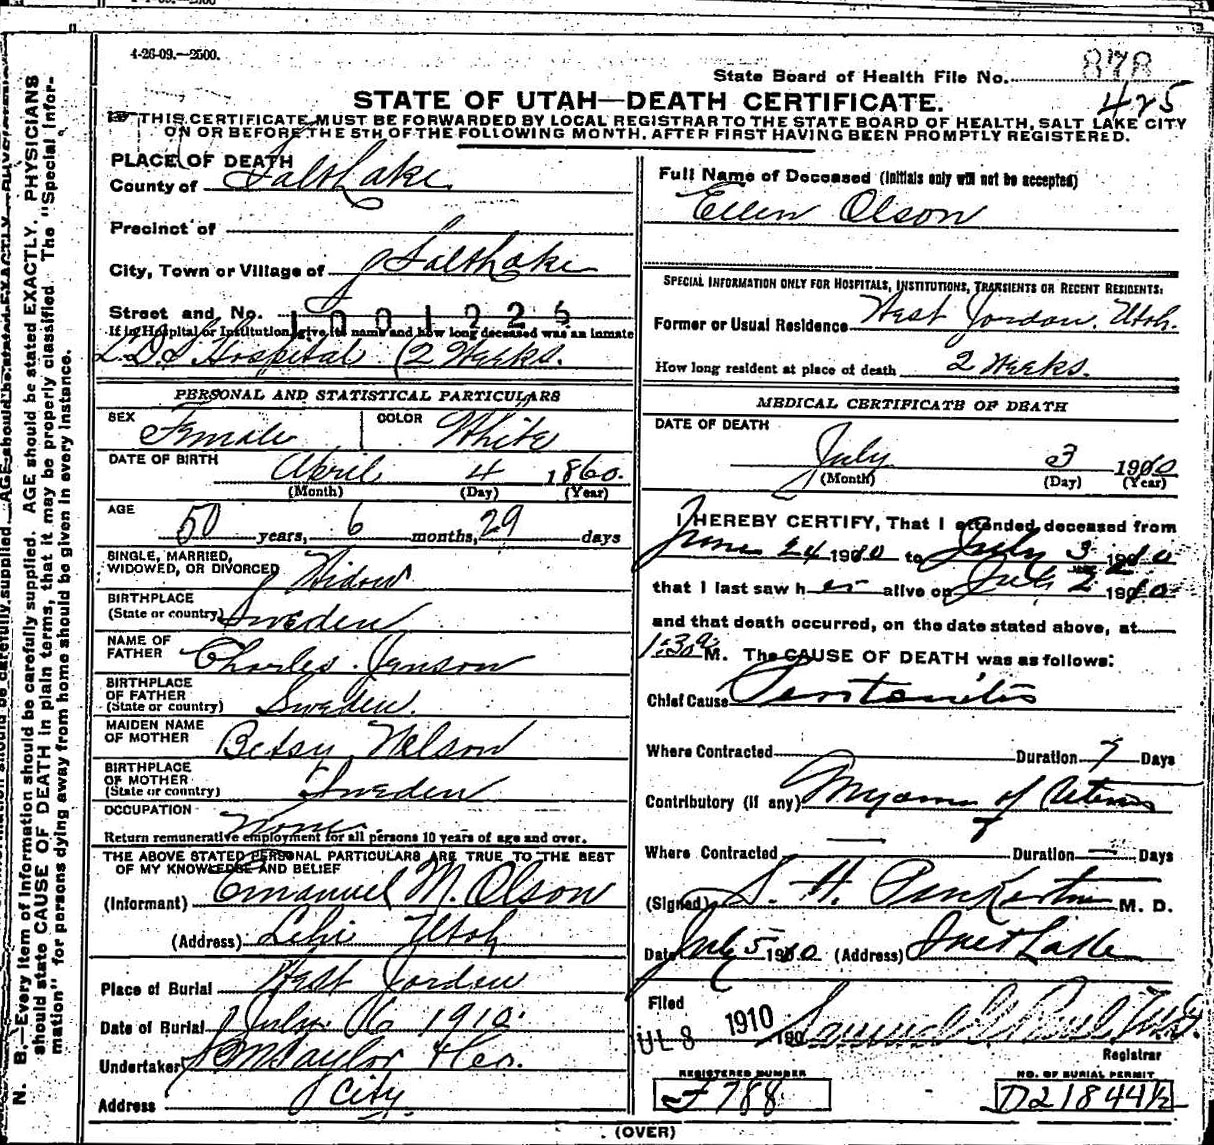 4-26-09.—2500.
State Board of Health File No. 878
425
STATE OF UTAH—DEATH CERTIFICATE.
THIS CERTIFICATE MUST BE FORWARDED BY LOCAL REGISTRAR TO THE STATE BOARD OF HEALTH, SALT LAKE CITY
ON OR BEFORE THE 5TH OF THE FOLLOWING MONTH, AFTER FIRST HAVING BEEN PROMPTLY REGISTERED.
PLACE OF DEATH
County of Salt Lake
Precinct of
City, Town or Village of Salt Lake
Street and No. 1001226
If in Hospital or Institution, give its name and how long deceased was an inmate
L.D.S. Hospital (2 Weeks.
PERSONAL AND STATISTICAL PARTICULARS
SEX Female COLOR White
DATE OF BIRTH April 4 1860.
(Month) (Day) (Year)
AGE
50 years, 6 months, 29 days
SINGLE, MARRIED,
WIDOWED, OR DIVORCED Widow
BIRTHPLACE
(State or country) Sweden
NAME OF
FATHER Charles Jenson
BIRTHPLACE
OF FATHER
(State or country) Sweden.
MAIDEN NAME
OF MOTHER Betsy Nelson
BIRTHPLACE
OF MOTHER
(State or country) Sweden
OCCUPATION None
Return remunerative employment for all persons 10 years of age and over.
THE ABOVE STATED PERSONAL PARTICULARS ARE TRUE TO THE BEST
OF MY KNOWLEDGE AND BELIEF
(Informant) Emanuel M. Olson
(Address) Lehi Utah
Place of Burial West Jordan
Date of Burial July 06 1910
Undertaker Taylor
Address City
Full Name of Deceased (Initials only will not be accepted)
Ellen Olson
SPECIAL INFORMATION ONLY FOR HOSPITALS, INSTITUTIONS, TRANSIENTS OR RECENT RESIDENTS:
Former or Usual Residence West Jordan. Utah.
How long resident at place of death 2 Weeks.
MEDICAL CERTIFICATE OF DEATH
DATE OF DEATH
July 3 1910
(Month) (Day) (Year)
I HEREBY CERTIFY, That I attended deceased from
June 24 1910 to July 3 1910
that I last saw her alive on July 2 1910
and that death occurred, on the date stated above, at
1:30 a M. The CAUSE OF DEATH was as follows:
Chief Cause Peritonitis
Where Contracted Duration 7 Days
Contributory (if any) Myoma of Uterus
Where Contracted Duration Days
(Signed) S. H. Pinkerton M. D.
Date July 5 1910 (Address) Salt Lake
Filed
JUL 8 1910 190
Registrar
REGISTERED NUMBER
F788
NO. OF BURIAL PERMIT
D21844½
(OVER)
N. B.—Every item of information should be carefully supplied. AGE should be stated EXACTLY. PHYSICIANS
should state CAUSE OF DEATH in plain terms, that it may be properly classified. The "Special Infor-
mation" for persons dying away from home should be given in every instance.